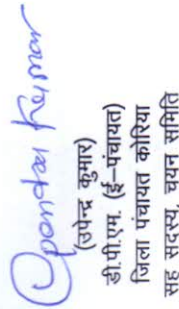 Upendra Kumar
(उपेन्द्र कुमार)
डी.पी.एम. (ई–पंचायत)
जिला पंचायत कोरिया
सह सदस्य, चयन समिति